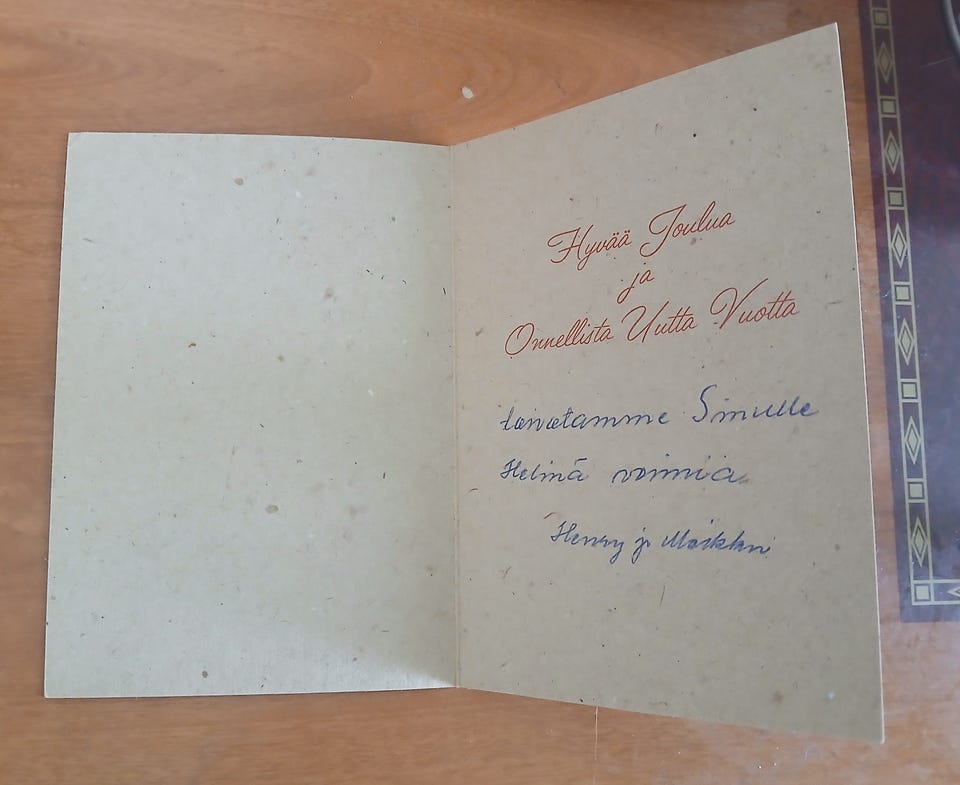 Hyvää Joulua
ja
Onnellista Uutta Vuotta
toivotamme Sinulle
Helmä voimia
Henry ja